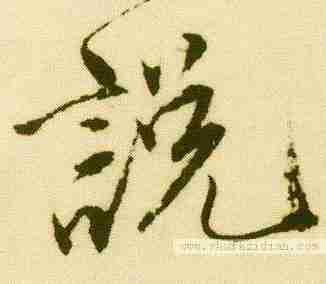 説
www.shufazidian.com